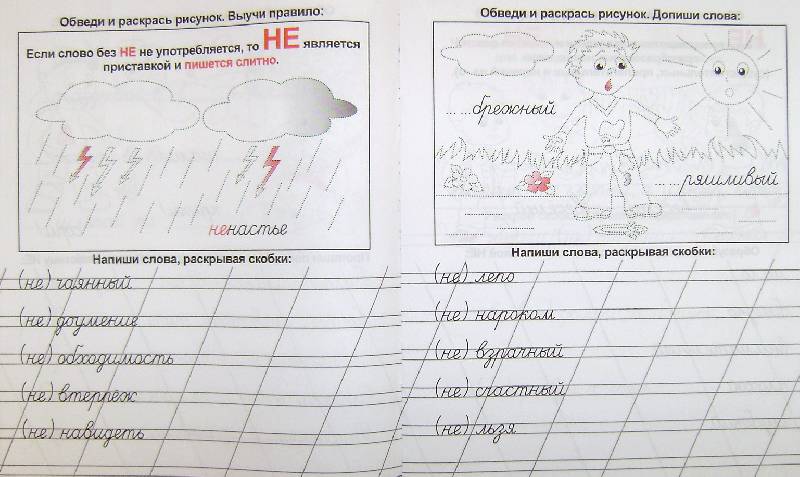 Обведи и раскрась рисунок. Выучи правило:
Если слово без НЕ не употребляется, то НЕ является
приставкой и пишется слитно.
ненастье
Напиши слова, раскрывая скобки:
(не) чаянный
(не) доумение
(не) обходимость
(не) втерпёж
(не) навидеть
Обведи и раскрась рисунок. Допиши слова:
... ...брежный
... ...ряшливый
Напиши слова, раскрывая скобки:
(не) лепо
(не) нароком
(не) взрачный
(не) счастный
(не) льзя